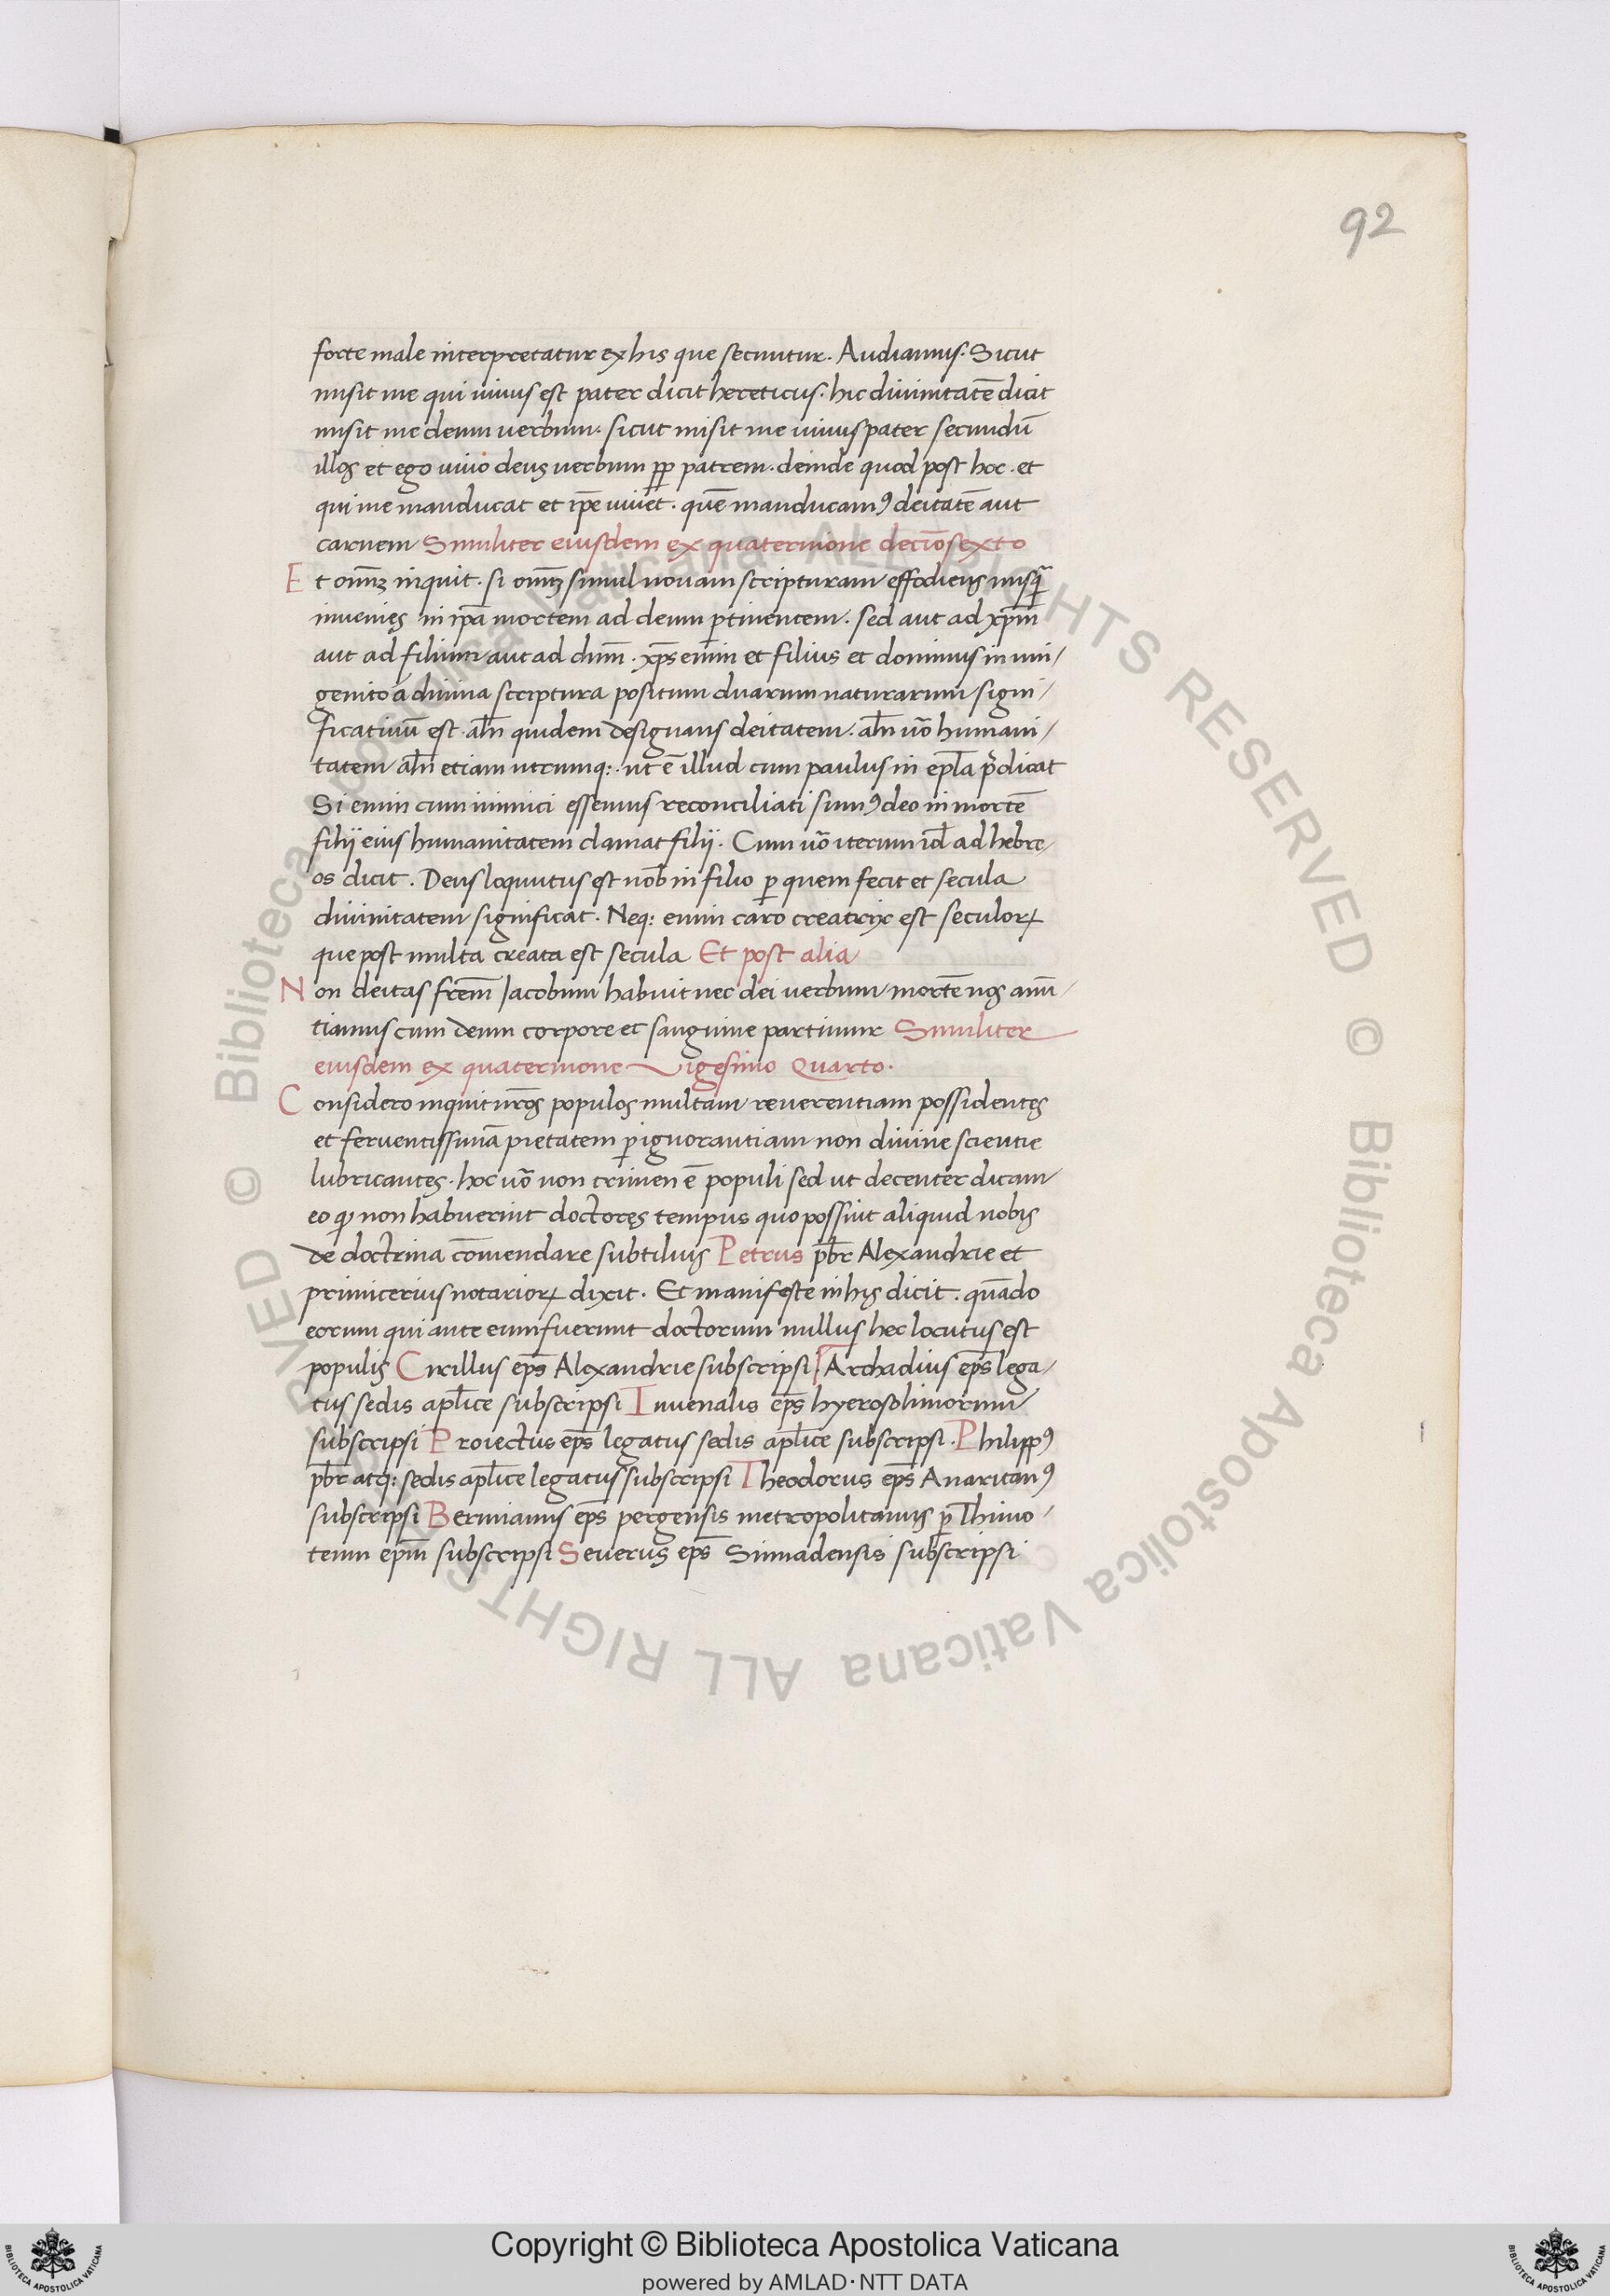 92
forte male interpretatur ex his que secuntur. Audiamus. Sicut
misit me qui uiuus est pater dicit hereticus. hic diuinitatē dicit
misit me deum uerbum. sicut misit me uiuus pater secundū
illos et ego uiuo deus uerbum ꝓp patrem. deinde quod post hoc. et
qui me manducat et ip̄e uiuet. quē manducamꝰ deitatē aut
carnem Similiter eiusdem ex quaternione decīosexto
Et om̄ꝫ inquit. si om̄ꝫ simul nouam scripturam effodiens nusq̄
inuenies in ip̄a mortem ad deum ꝑtinentem. sed aut ad xp̄m
aut ad filium aut ad dn̄m. xp̄s enim et filius et dominus in uni/
genito a diuina scriptura positum duarum naturarum signi/
ficatiuū est. alīn quidem designans deitatem. alīn uō humani/
tatem alīn etiam utrumq:. ut ē illud cum paulus in epl̄a p̄dicat
Si enim cum inimici essemus reconciliati sumꝰ deo in mortē
filij eius humanitatem clamat filij. Cum uō iterum id̄ ad hebre/
os dicit. Deus loquutus est nob̄ in filio ꝑ quem fecit et secula
diuinitatem significat. Neq: enim caro creatrix est seculoꝝ
que post multa creata est secula Et post alia
Non deitas frēm Jacobum habuit nec dei uerbum mortē nos anū/
tiamus cum deum corpore et sanguine partimur Similiter
eiusdem ex quaternione Vigesimo Quarto.
Considero inquit nr̄os populos multam reuerentiam possidentes
et feruentissimā pietatem ꝑ ignorantiam non diuine scientie
lubricantes. hoc uō non crimen ē populi sed ut decenter dicam
eo ꝙ non habuerint doctores tempus quo possint aliquid nobis
de doctrina cōmendare subtilius Petrus pb̄r Alexandrie et
primicerius notarioꝝ dixit. Et manifeste in his dicit. quādo
eorum qui ante eum fuerunt doctorum nullus hec locutus est
populis Cirillus ep̄s Alexandrie subscripsi. Archadius ep̄s lega/
tus sedis apl̄ice subscripsi Iuuenalis ep̄s hyerosolimorum
subscripsi Proiectus ep̄s legatus sedis apl̄ice subscripsi. Philippꝰ
pb̄r atq: sedis apl̄ice legatus subscripsi Theodorus ep̄s Anaritanꝰ
subscripsi Bermianus ep̄s pergensis metropolitanus ꝑ Thimo/
teum ep̄m subscripsi Seuerus ep̄s Sinnadensis subscripsi
© Biblioteca Apostolica Vaticana ALL RIGHTS RESERVED
© Biblioteca Apostolica Vaticana ALL RIGHTS RESERVED
Copyright © Biblioteca Apostolica Vaticana
powered by AMLAD·NTT DATA
BIBLIOTECA APOSTOLICA VATICANA
BIBLIOTECA APOSTOLICA VATICANA